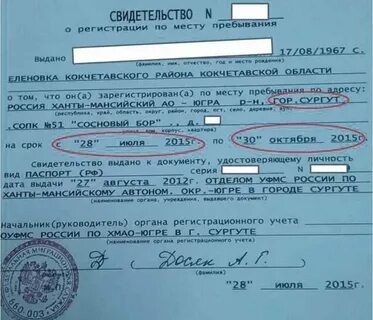 СВИДЕТЕЛЬСТВО N
о регистрации по месту пребывания
Выдано 17/08/1967 г.
(фамилия, имя, отчество, год и место рождения)
ЕЛЕНОВКА КОКЧЕТАВСКОГО РАЙОНА КОКЧЕТАВСКОЙ ОБЛАСТИ
о том, что он(а) зарегистрирован(а) по месту пребывания по адресу:
РОССИЯ ХАНТЫ-МАНСИЙСКИЙ АО - ЮГРА р-н, ГОР.СУРГУТ
(республика, край, область, округ, район, город, пгт, село, деревня, аул,
,СОПК №51 "СОСНОВЫЙ БОР" , д.
улица, дом, корпус, квартира)
на срок с "28" июля 2015г. по "30" октября 2015г.
Свидетельство выдано к документу, удостоверяющему личность
вид ПАСПОРТ (РФ) серия N
дата выдачи "27" августа 2012г. ОТДЕЛОМ УФМС РОССИИ ПО
ХАНТЫ-МАНСИЙСКОМУ АВТОНОМ. ОКР.-ЮГРЕ В ГОРОДЕ СУРГУТЕ
(наименование органа, учреждения, выдавшего документ)
Начальник(руководитель) органа регистрационного учета
ОУФМС РОССИИ ПО ХМАО-ЮГРЕ В Г. СУРГУТЕ
(наименование органа регистрационного учета)
М.П.
(фамилия)
"28" июля 2015г.
660-003